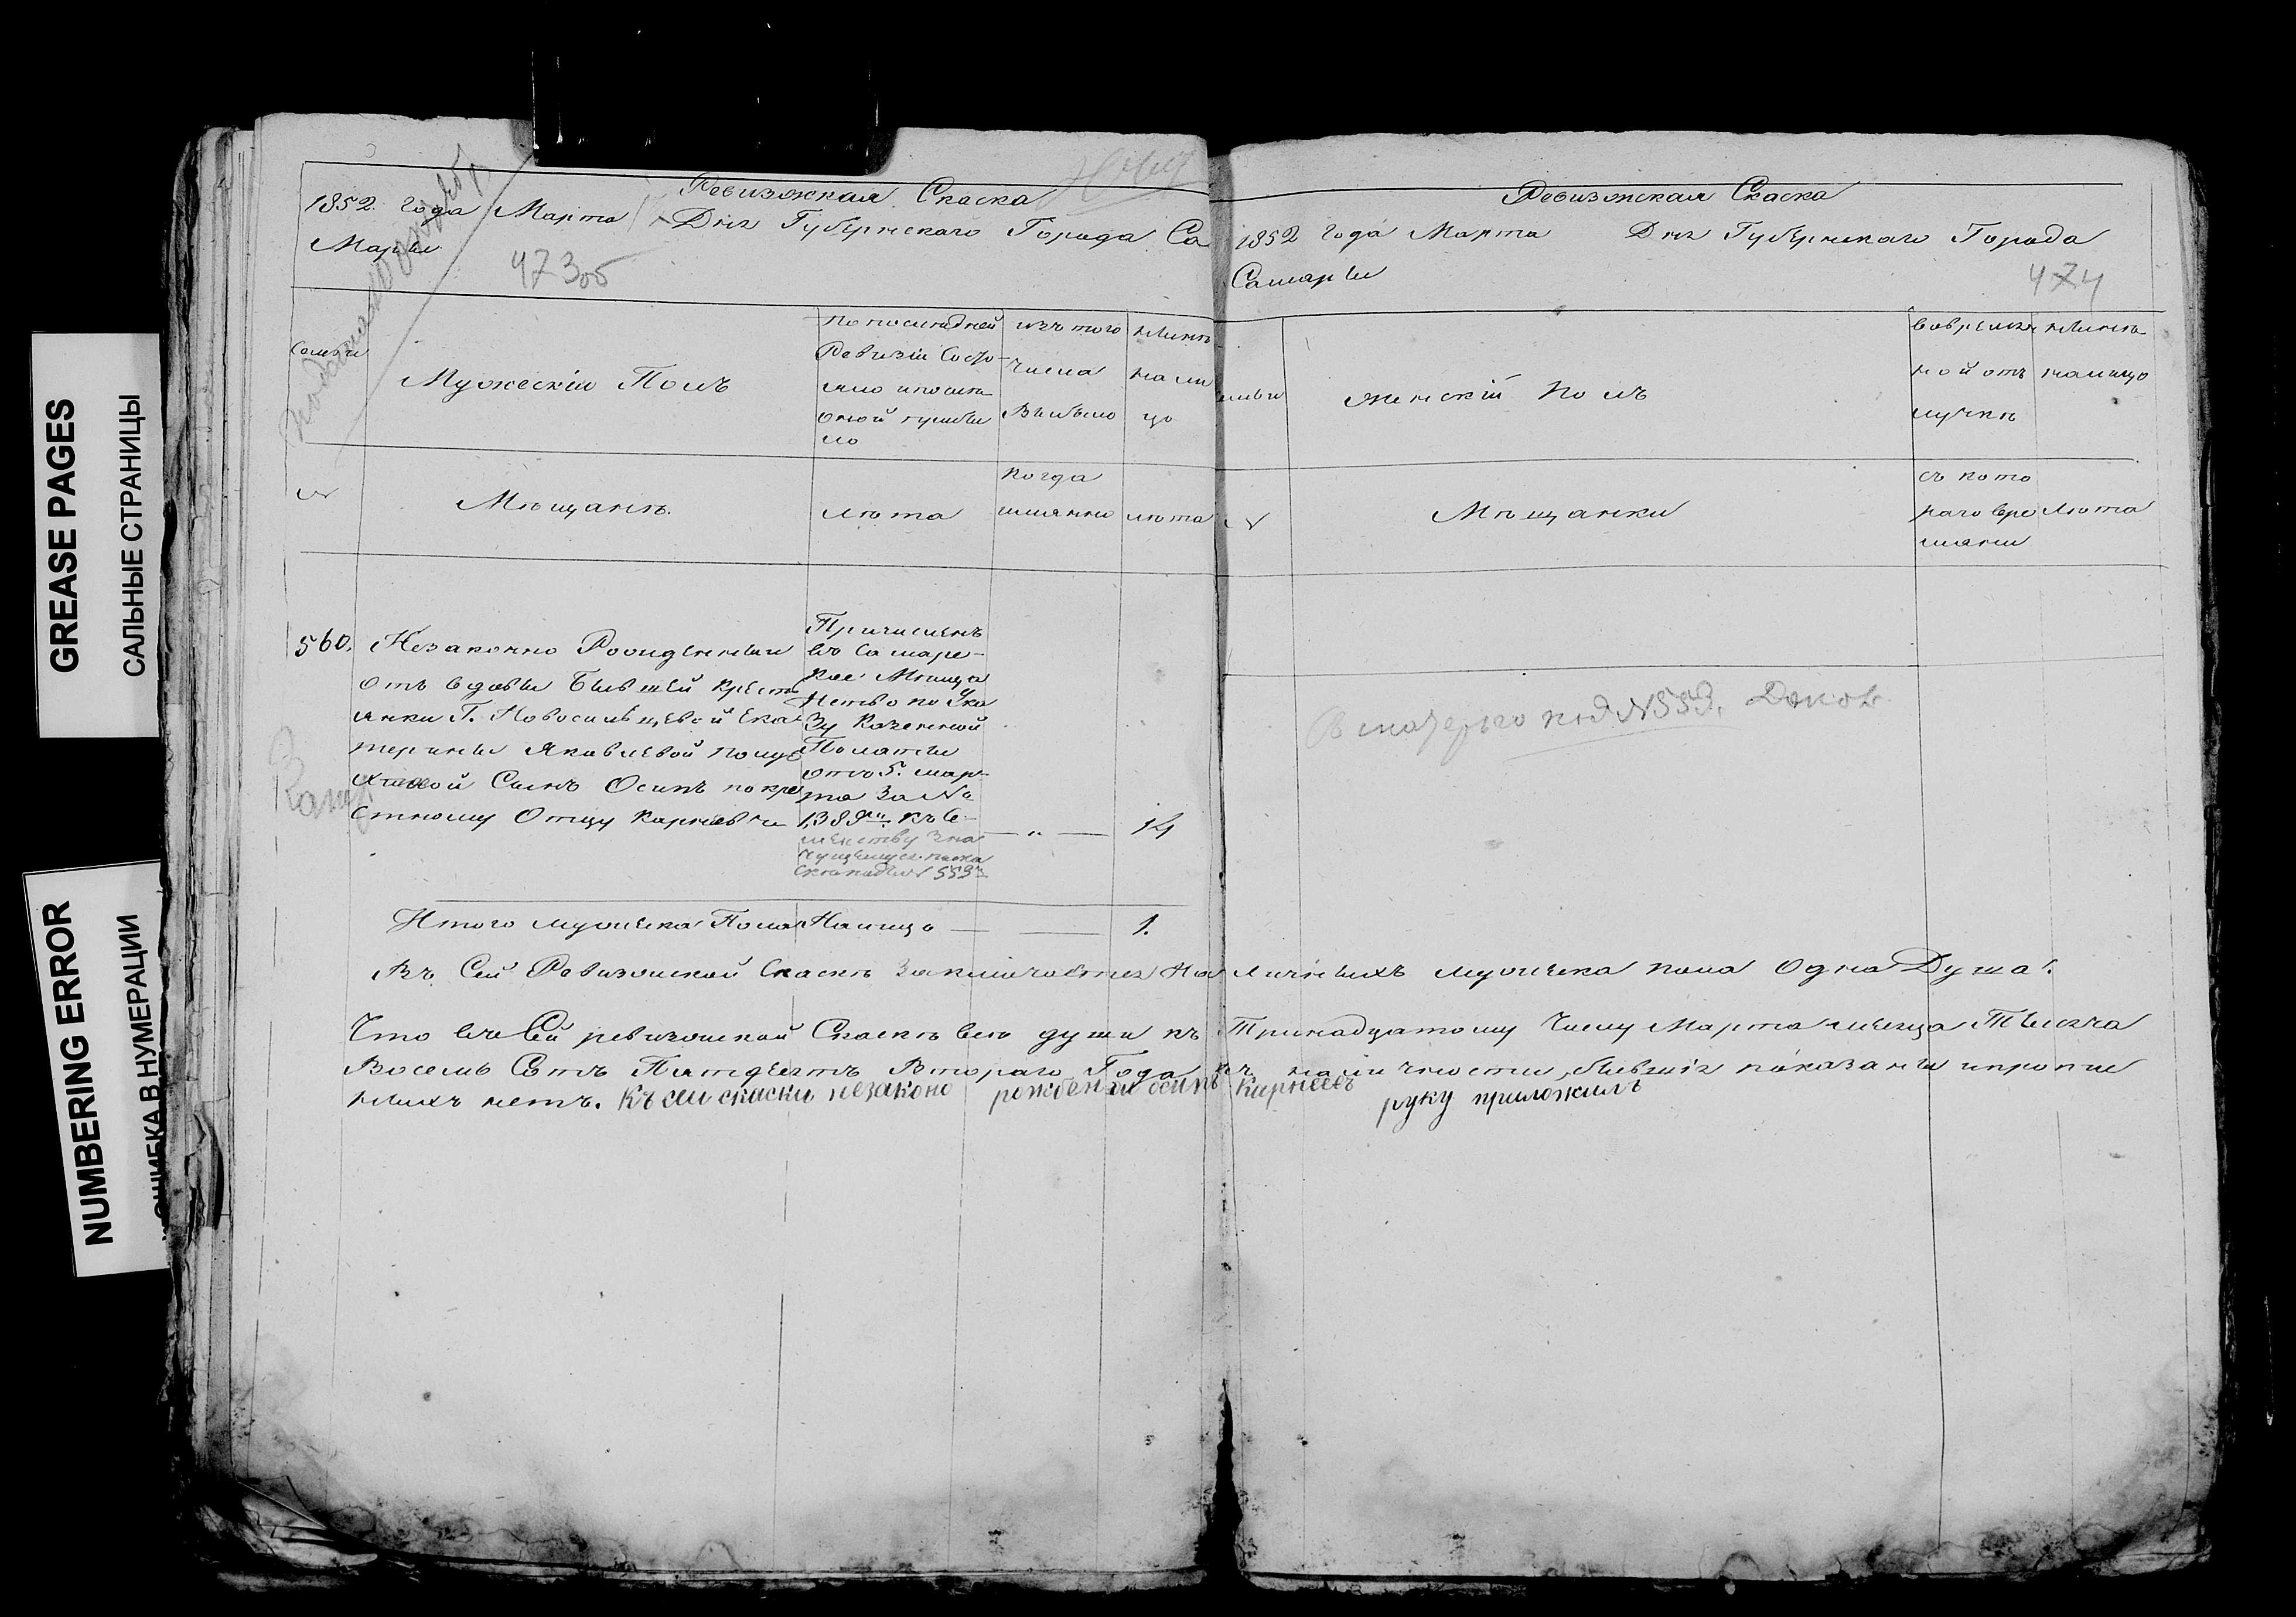 GREASE PAGES
САЛЬНЫЕ СТРАНИЦЫ
NUMBERING ERROR
ОШИБКА В НУМЕРАЦИИ
Ревизжская Скаска
1852. года Марта Дня Губернскаго Города Са
Мары
473об
Семьи
Мужескій Полъ
по последней
Ревизіи Состо-
яло и после
оной прибы
ло
изъ того
числа
Выбыло
ныне
на ли
цо
№
Мещане.
лета
когда
имянно
лета
560.
Незаконно Рожденный
отъ вдовы Бывшей крестъ
янки Г. Новосильцевой Ека
терины Яковлевой
Сынъ Осипъ по кре
стному Отцу Карнеевъ
Причисленъ
въ Самаре-
кое Мещан
нство по Ука
зу Казенной
Палаты
отъ 5. мар-
та за №
1389м. къ Се-
мейству зна
чущемуся по ска
ске подъ № 559м
— „ —
14
Итого мужеска Пола Налицо — —
1.
Ревизжская Скаска
1852 года Марта Дня Губернскаго Города
Самары
474
семьи
женскій полъ
во времян
ной от
лучке
ныне
налицо
№
Мещанки
съ кото
раго вре
мяни
Лета
под №559.
Въ Сей Ревизжской Скаске Заключается На личныхъ мужеска пола одна Душа.
Что въ Сей ревизжской Скаске все души къ Тринадцатому Числу Марта месяца Тысяча
Восемь Сотъ Пятдесятъ Втораго Года въ наличности бывшія показаны и пропис
ныхъ нетъ. Къ сей скаски незаконо рожденый осипъ Карнеевъ
руку приложилъ